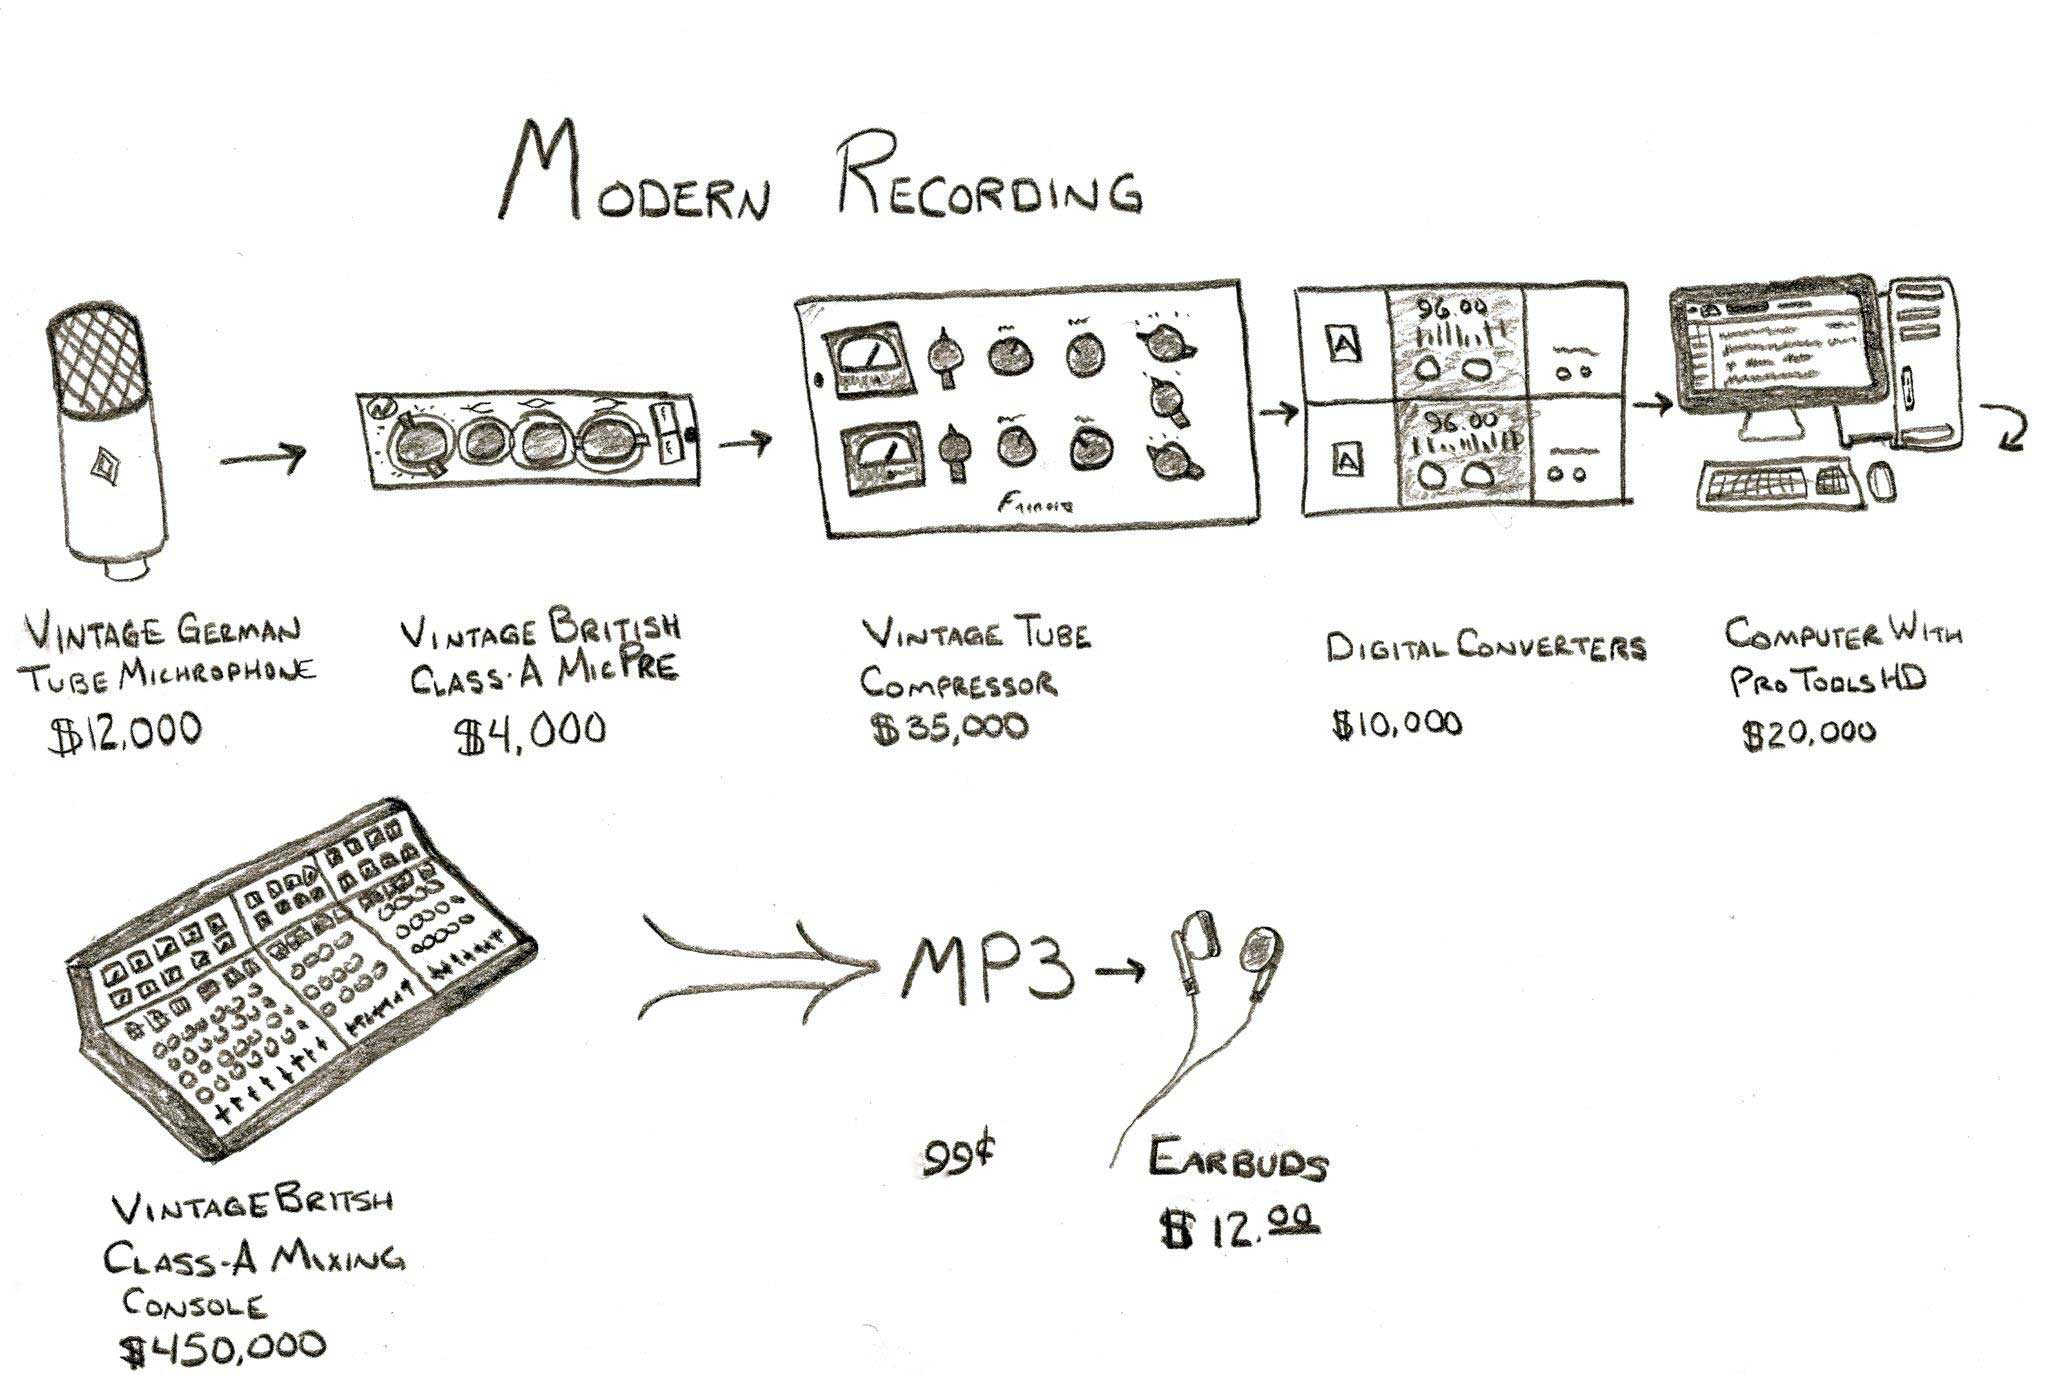 MODERN RECORDING
96.00
A
96.00
A
VINTAGE GERMAN
TUBE MICHROPHONE
$12,000
VINTAGE BRITISH
CLASS-A MIC PRE
$4,000
VINTAGE TUBE
COMPRESSOR
$35,000
DIGITAL CONVERTERS
$10,000
COMPUTER WITH
PRO TOOLS HD
$20,000
MP3
99¢
EARBUDS
$12.00
VINTAGE BRITSH
CLASS-A MIXING
CONSOLE
$450,000